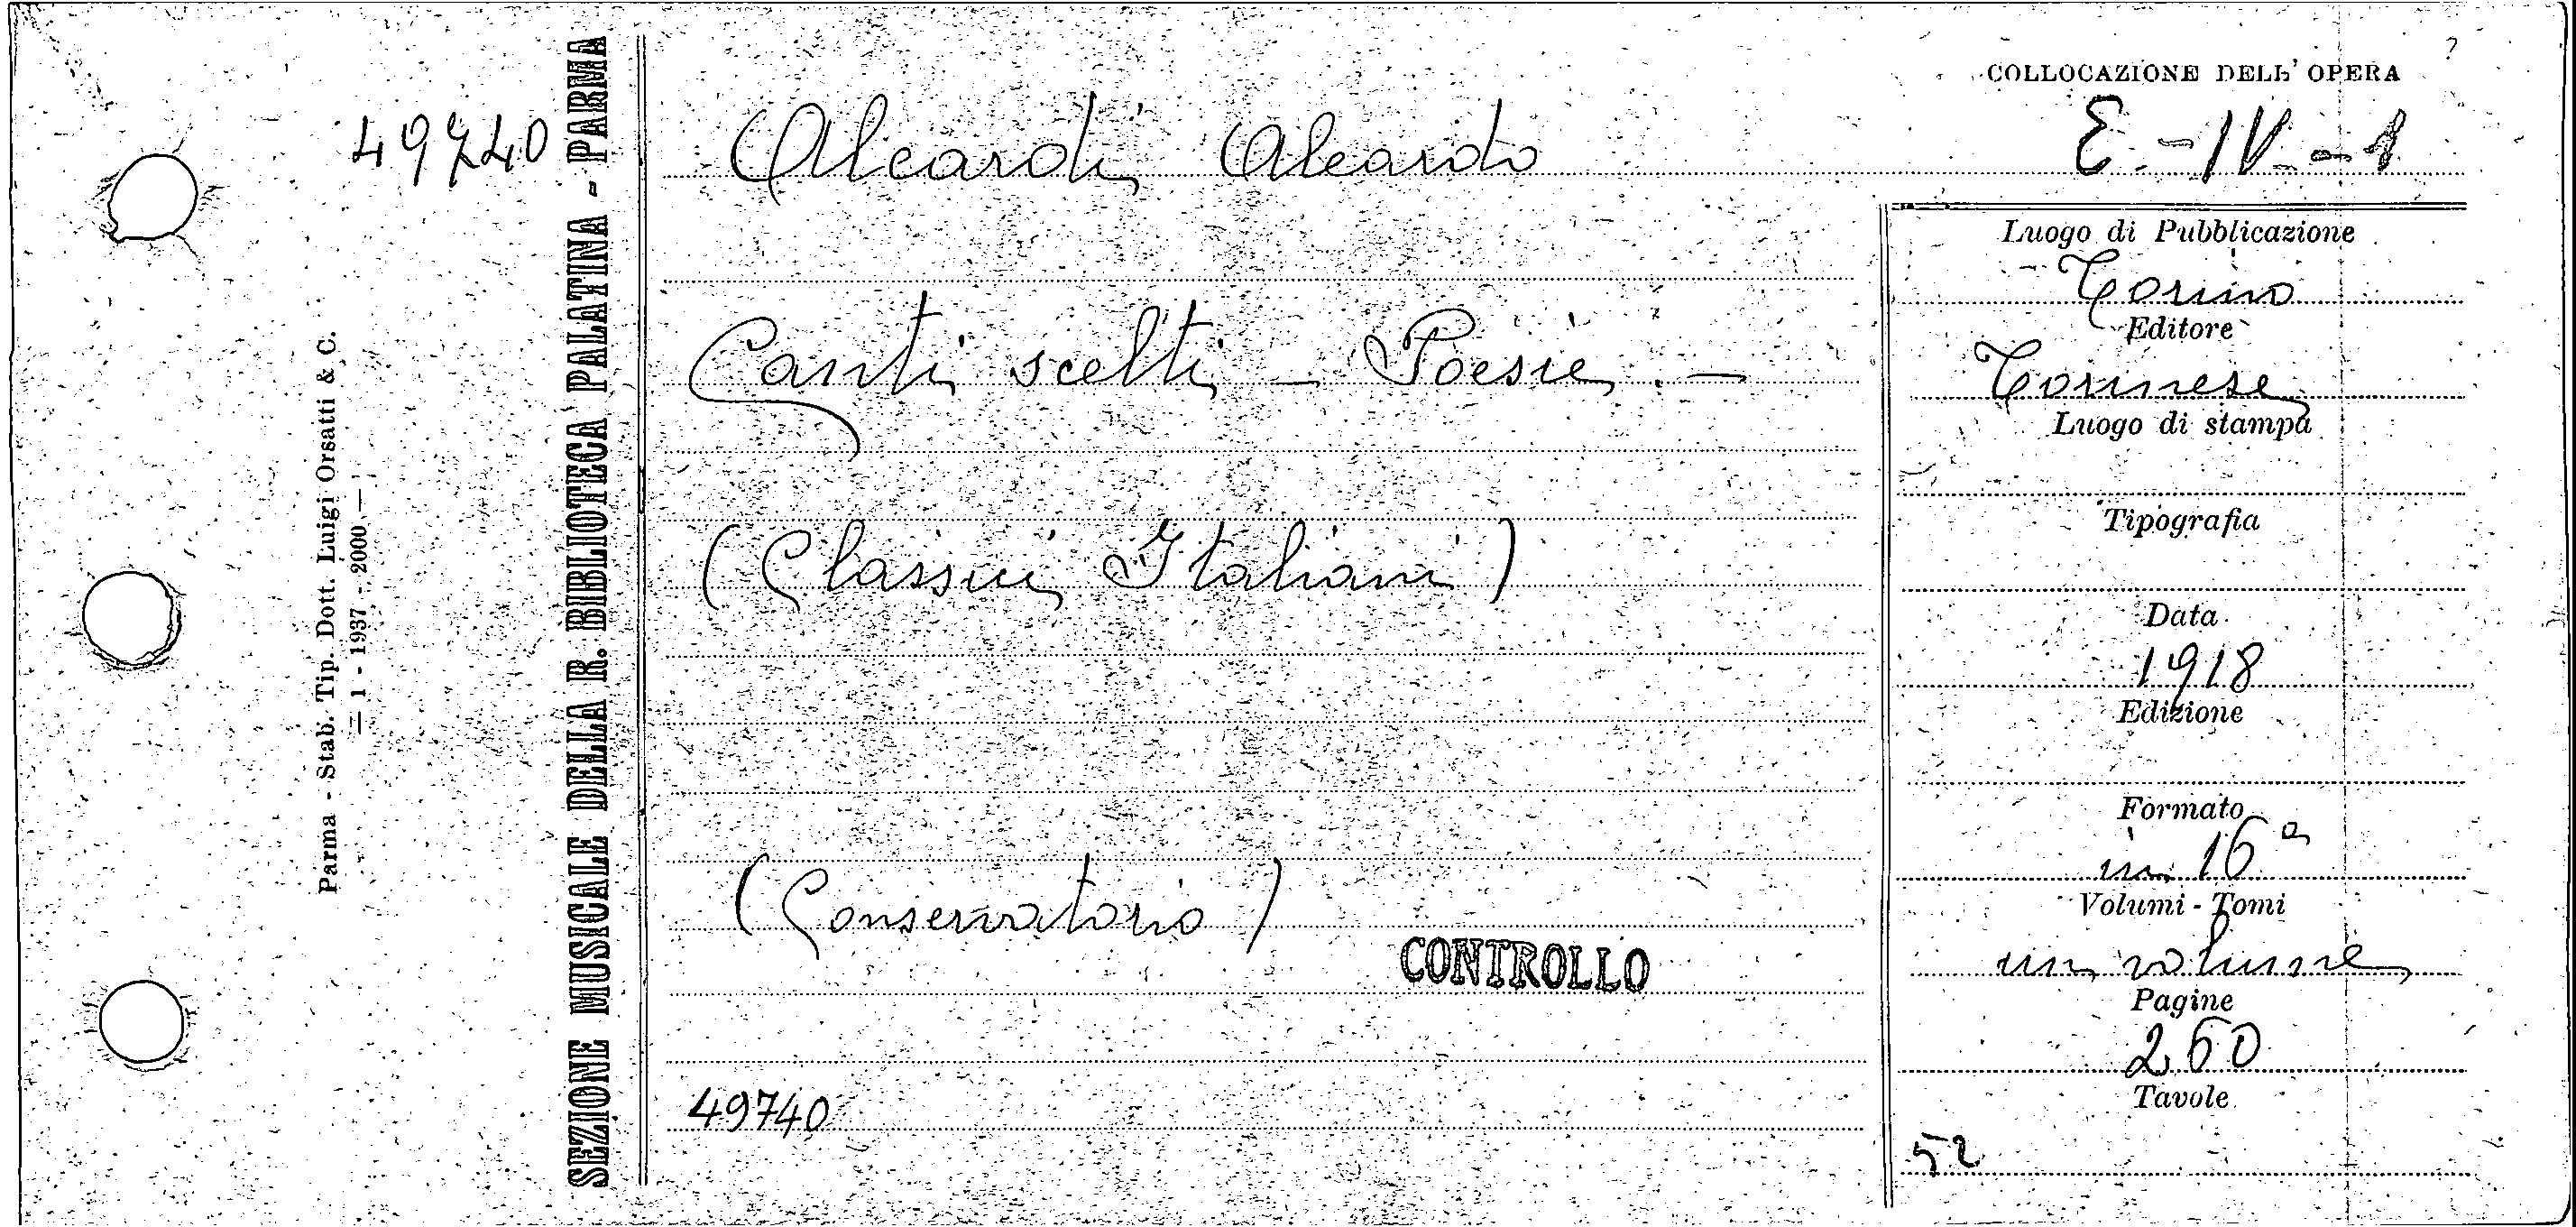 49740
Parma - Stab. Tip. Dott. Luigi Orsatti & C.
- 1 - 1937 - 2000 -
SEZIONE MUSICALE DELLA R. BIBLIOTECA PALATINA - PARMA
Aleardi Aleardo
Canti scelti - Poesie. -
(Classici Italiani)
(Conservatorio)
CONTROLLO
49740
COLLOCAZIONE DELL' OPERA
E. - IV. - 1
Luogo di Pubblicazione
Torino
Editore
Torinese
Luogo di stampa
Tipografia
Data
1918
Edizione
Formato
in 16°
Volumi - Tomi
un volume
Pagine
260
Tavole
52